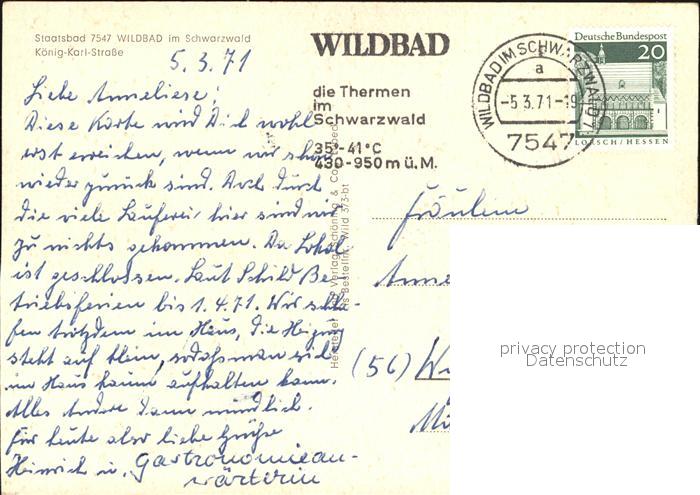 Staatsbad 7547 WILDBAD im Schwarzwald
König-Karl-Straße
5.3.71
Liebe Anneliese!
Diese Karte wird Dich wohl
erst erreichen, wenn wir schon
wieder zurück sind. Doch durch
die viele Lauferei hier sind wir
zu nichts gekommen. Das Lokal
ist geschlossen. Laut Schild Be-
triebsferien bis 1.4.71. Wir schla-
fen trotzdem im Haus, die Heizung
steht auf klein, sodaß man sich
im Haus kaum aufhalten kann.
Alles Andere dann mündlich.
Für heute also liebe Grüße
Heinrich u. Gastronomiean-
wärterin
WILDBAD
die Thermen
im
Schwarzwald
35°-41°C
430-950 m ü.M.
WILDBAD IM SCHWARZWALD
a
-5 3.71-19
7547
Deutsche Bundespost
20
LORSCH/HESSEN
Verlag Schöning & Co
Bestellnr. Wild 373-bt
Fräulein
Anne
(56) Wu
privacy protection
Datenschutz